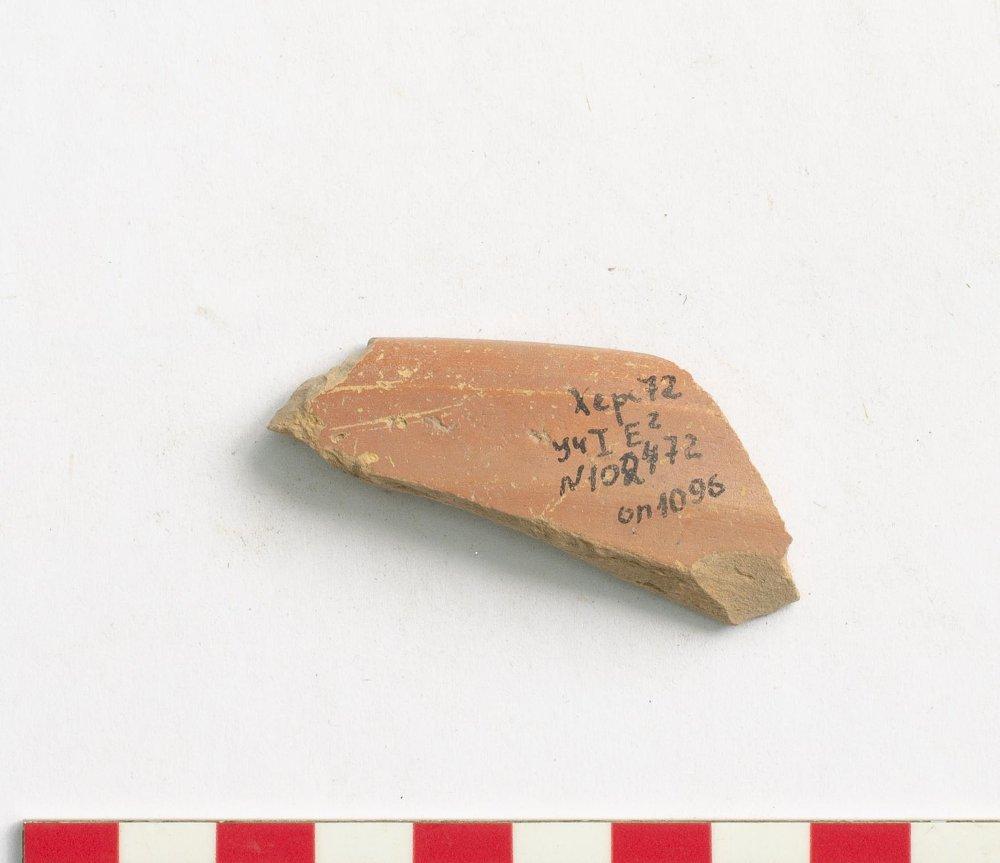 Херс 72
уч I E 2
N 102472
оп 1096